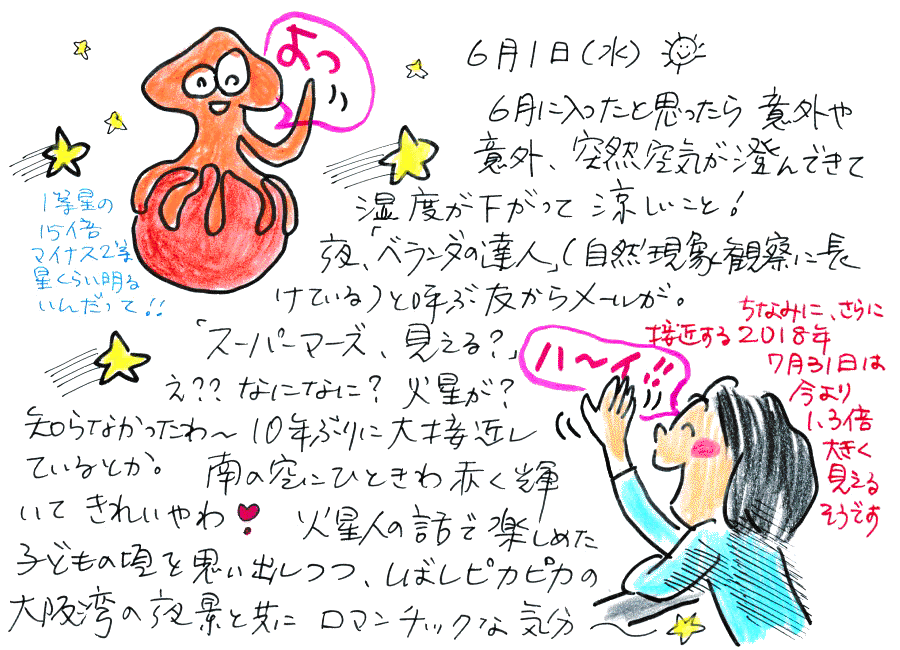 よっ
6月1日(水)
6月に入ったと思ったら 意外や
意外、突然空気が澄んできて
湿度が下がって 涼しいこと!
夜、「ベランダの達人」(自然現象観察に長
けている)と呼ぶ友からメールが。
「スーパーマーズ、見える?」
え?? なになに? 火星が?
知らなかったわ〜 10年ぶりに大接近し
ているとか。 南の空にひときわ赤く輝
いて きれいやわ 火星人の話で楽しめた
子どもの頃を思い出しつつ、しばしピカピカの
大阪湾の夜景と共に ロマンチックな気分〜
1等星の
15倍
マイナス2等
星くらい明る
いんだって!!
ハ〜イ!!
ちなみに、さらに
接近する2018年
7月31日は
今より
1.3倍
大きく
見える
そうです